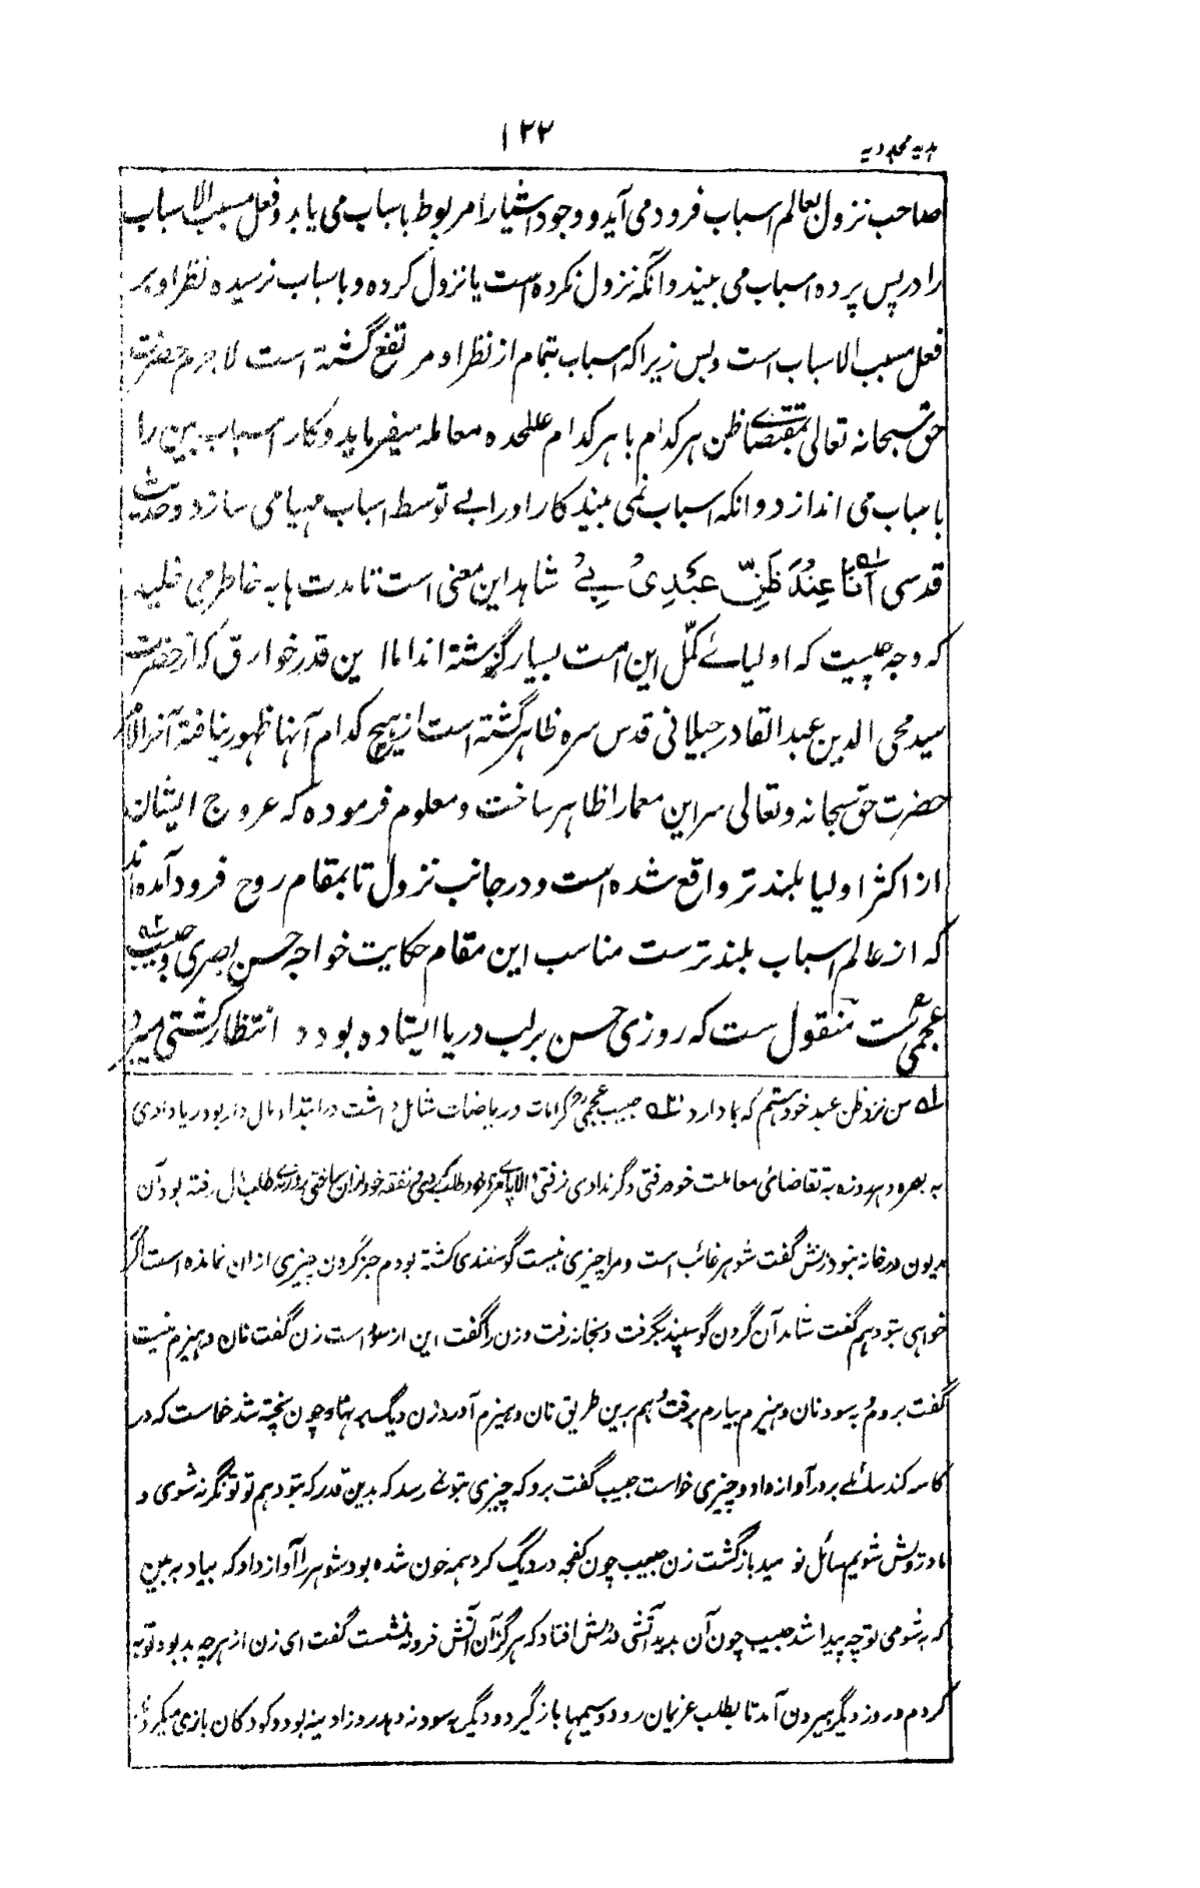 ہدیہ مجددیہ
۱۲۲
صاحب نزول بعالم اسباب فرود می آید و وجود اشیا را مربوط باسباب می یابد و فعل مسبب الاسباب
را در پس پرده اسباب می بیند و آنکه نزول نکرده است یا نزول کرده و باسباب نرسیده نظر او بر
فعل مسبب الاسباب است و بس زیرا که اسباب بتمام از نظر او مرتفع گشته است لاجرم حضرت
حق سبحانه تعالی بمقتضائے ظن هر کدام با هر کدام علٰحده معامله میفرماید و کار اسباب بین را
باسباب می اندازد و انکه اسباب نمی بیند کار او را بے توسط اسباب مهیا می سازد و حدیث
قدسی اَنَا عِنْدَ ظَنِّ عَبْدِیْ بِیْ شاهد این معنی است تا مدت ها به خاطر می خلید
که وجه چیست که اولیائے کمّل این امت بسیار گذشته اند اما این قدر خوارق که از حضرت
سید محی الدین عبد القادر جیلانی قدس سره ظاهر گشته است از هیچ کدام آنها ظهور نیافته آخر الامر
حضرت حق سبحانه و تعالی سر این معما را ظاهر ساخت و معلوم فرموده که عروج ایشان
از اکثر اولیا بلند تر واقع شده است و در جانب نزول تا بمقام روح فرود آمده اند
که از عالم اسباب بلند ترست مناسب این مقام حکایت خواجه حسن بصری و حبیب ۲
عجمی ست منقول ست که روزی حسن بر لب دریا ایستاده بود و انتظار کشتی میبرد
۱ من نزد ظن عبد خود هستم که بما دارد ۲ حبیب عجمی کرامات و ریاضات شامل داشت در ابتدا مال دار بود ربا دادی
به بصره و هر روزه به تقاضائی معاملت خود رفتی و گر ندادی نرفتی الا پائے مزد طلب کردی و نفقه خود ازان ساختی روزے بطلب مال رفته بود آن
مدیون در خانه نبود زنش گفت شوهر غائب است و مرا چیزی نیست گوسفندی کشته بودم جز گردن چیزی ازان نمانده است اگر
خواهی بتو دهم گفت شاید آن گردن گوسپند بگرفت و بخانه رفت و زن را گفت این از سود است زن گفت نان و هیزم نیست
گفت بروم و به سود نان و هیزم بیارم برفت و هم برین طریق نان و هیزم آورد زن دیگ بر نهاد و چون پخته شد خواست که در
کاسه کند سائلے بر در آواز داد و چیزی خواست حبیب گفت برو که چیزی بتو نمے رسد که بدین قدر که بتو دهم تو تونگر نه شوی و
ما درویش شویم سائل نومید بازگشت زن حبیب چون کفچه در دیگ کرد همه خون شده بود شوهر را آواز داد که بیا و به بین
که به شومی تو چه پیدا شد حبیب چون آن بدید آتشی در دلش افتاد که هرگز آن آتش فرو ننشست گفت ای زن از هر چه بد بود توبه
کردم و روز دیگر بیرون آمد تا بطلب غریمان رود و سیمها باز گیرد و دیگر به سود ندهد روز ادینه بود و کودکان بازی میکردند